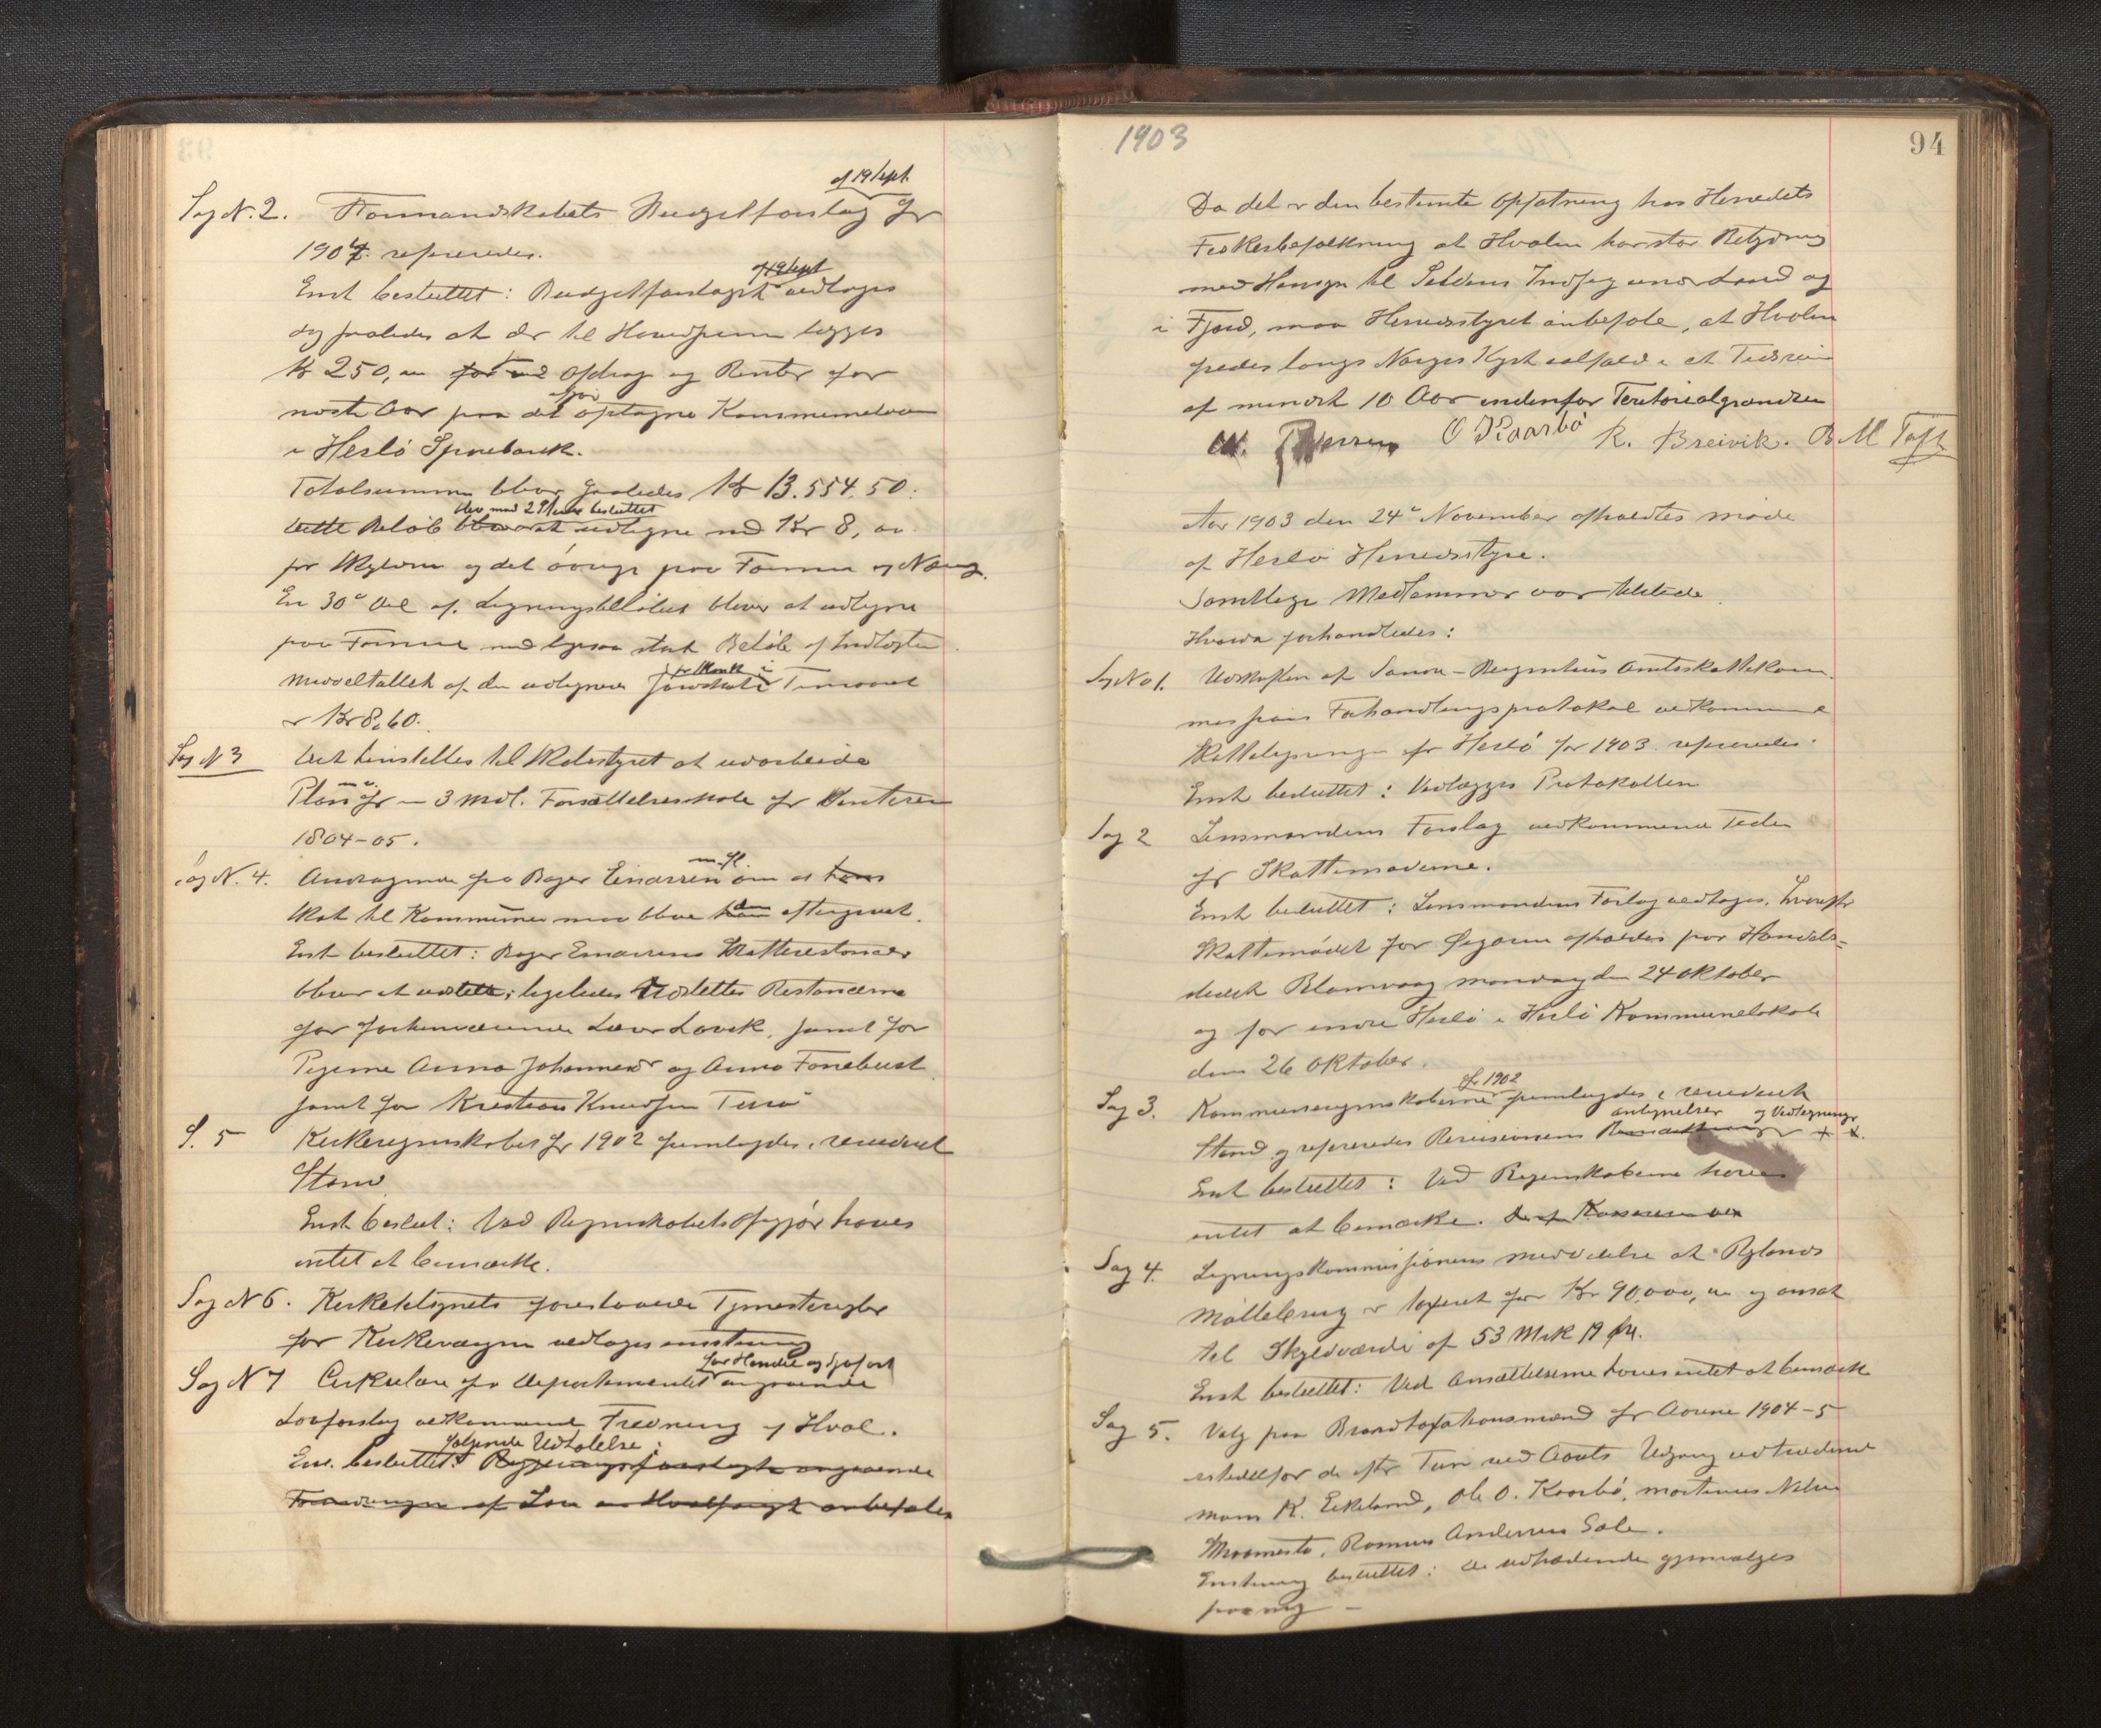 af 19 Sept.
Sag N. 2. Formandskabets Budgetforslag for
1904 refereredes.
af 19 Sept
Enst besluttet: Budgetforslaget vedtages
dog saaledes at der til Hovedsummen lægges
Kr 250,00 for Afdrag og Renter for
næste Aar paa det optagne Kommunelaan
i Herlø Sparebank.
Totalsummen bliver saaledes Kr 13.554.50.
blev med besluttet
dette Beløb at udligne med Kr 8,00
pr Skylden og det øvrige paa Formue og Næring.
En 30e Del af Ligningsbeløbet bliver at udligne
paa Formue med ligesaa stort Beløb af Indtægten
Middeltallet af den udlignede pr Skatt i Timandet
er Kr 8,60.
Sag N 3 Det henstilles til Skolestyret at udarbeide
Plan m.v. for en 3 mdl. Fortsættelsesskole for Vinteren
1804-05.
m. fl.
Sag N. 4. Andragende fra Roger Einarsen om at hans
Skat til Kommunen maa blive dem eftergivet.
Enst besluttet: Roger Einarsens Skatterestancer
bliver at udslette; ligeledes udslettes Restancerne
for forhenværende Lærer Lavik, samt for
Pigerne Anna Johannesdr og Anna Fonebust
samt for Kristian Knudsen Turø
S. 5 Kirkeregnskabet for 1902 fremlagdes i revideret
Stand
Enst beslut: Ved Regnskabets Opgjør haves
intet at bemærke.
Sag N 6. Kirketilsynets foreslaaede Tjenesteregler
for Kirkeværgen vedtages enstemmig
for Handel og Sjøfart
Sag N 7 Cirkulære fra Departementet angaaende
Lovforslag vedkommende Fredning af Hval.
følgende Udtalelse:
Ens. besluttet: Regjeringsforslaget angaaende
Forandringer af Lov om Hvalfangst anbefales
1903
94
Da det er den bestemte Opfatning hos Herredets
Fiskerbefolkning at Hvalen har stor Betydning
med Hensyn til Sildens Indsig under Land og
i Fjord, maa Herredsstyret anbefale, at Hvalen
fredes langs Norges Kyst ialfald i et Tidsrum
af mindst 10 Aar indenfor Teritorialgrændsen
O Kaarbø R. Breivik. B M Toft
Aar 1903 den 24e November afholdtes møde
af Herlø Herredsstyre.
Samtlige Medlemmer var tilstede.
Hvorda forhandledes:
Sag No 1. Udskriften af Søndre-Bergenhus Amtsskattekom
missions Forhandlingsprotokol vedkommende
Skatteligningen for Herlø for 1903 refereredes.
Enst besluttet: Vedlægges Protokollen
Sag 2 Lensmandens Forslag vedkommende Tiden
for Skattemøderne.
Enst besluttet: Lensmandens Forslag vedtages, hvorefter
Skattemødet for Øygaren afholdes paa Handels-
stedet Blomvaag mandag den 24 Oktober
og for indre Herlø i Herlø Kommunelokale
den 26 Oktober.
for 1902
Sag 3. Kommuneregnskaberne fremlagdes i revideret
antegnelser og Vedtegninger
Stand og refereredes Revisionens Bemærkninger + +.
Enst besluttet: Ved Regnskaberne haves
intet at bemærke.
Sag 4. Ligningskommissionens meddelelse at Rylands
Møllebrug er taxeret for Kr 90,000,00 og ansat
til Skyldværdi af 53 Mrk 19 Øre.
Enst besluttet: Ved Ansættelserne haves intet at bemærke
Sag 5. Valg paa Brandtaxationsmænd for Aarene 1904-5
istedetfor de efter Tur ved Aarets Udgang udtrædende
Mons K. Eikeland, Ole O. Kaarbø, Martinus Nilsen
Skaamestø, Rasmus Andersen Sæle.
Enstemmig besluttet: de udtrædende gjenvælges
paa ny —